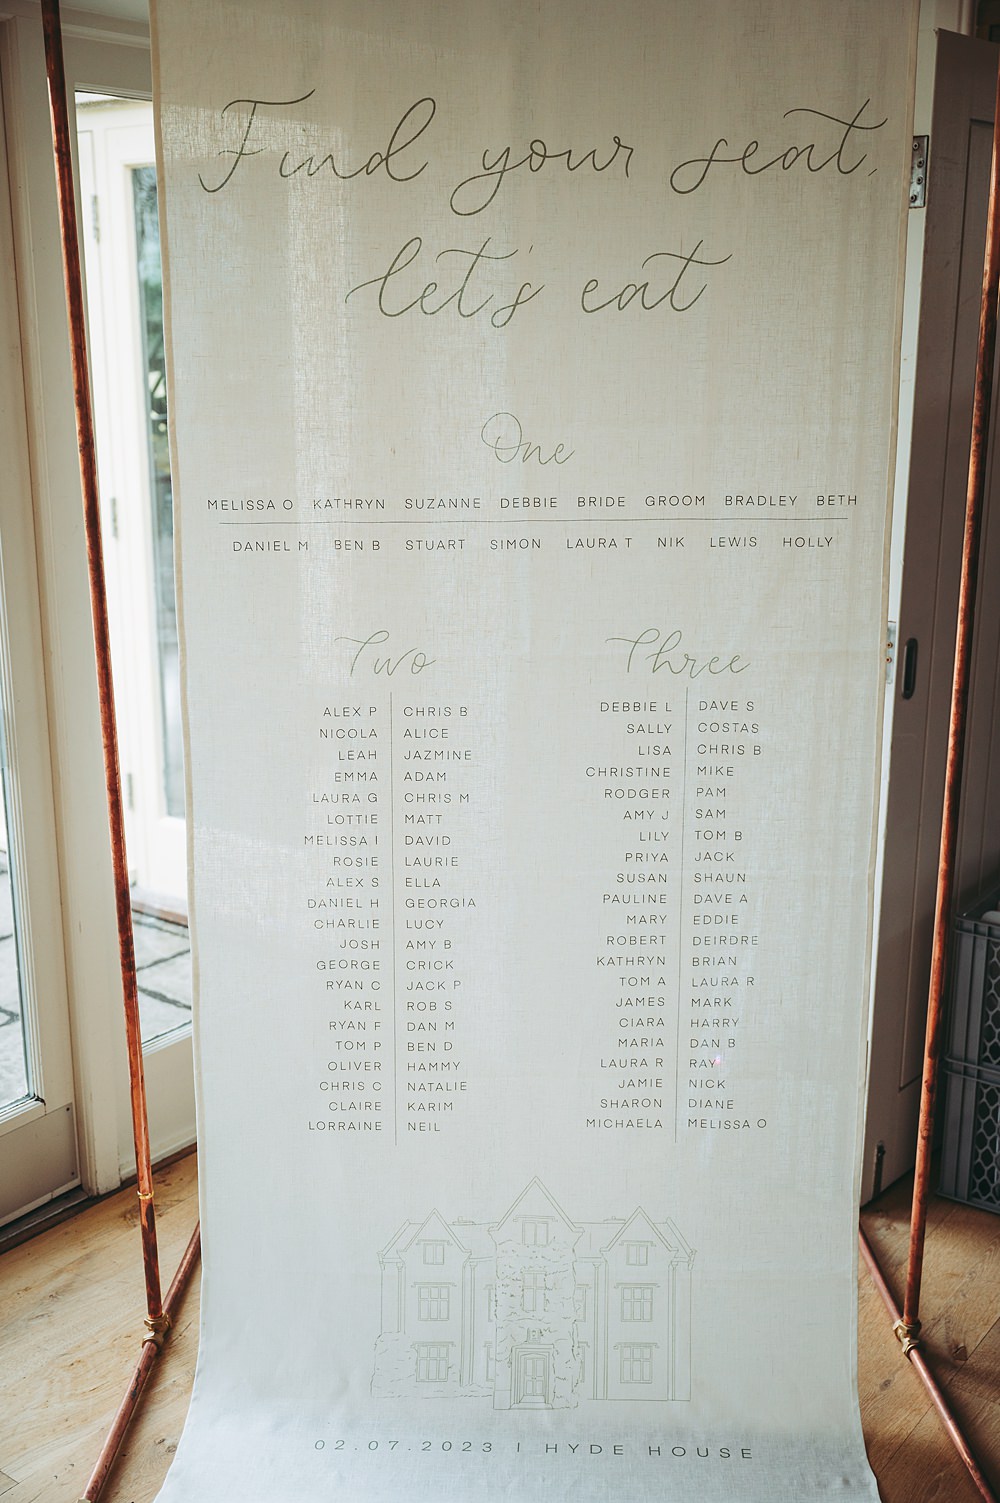 Find your seat,
let's eat
One
MELISSA O KATHRYN SUZANNE DEBBIE BRIDE GROOM BRADLEY BETH
DANIEL M BEN B STUART SIMON LAURA T NIK LEWIS HOLLY
Two
ALEX P CHRIS B
NICOLA ALICE
LEAH JAZMINE
EMMA ADAM
LAURA G CHRIS M
LOTTIE MATT
MELISSA I DAVID
ROSIE LAURIE
ALEX S ELLA
DANIEL H GEORGIA
CHARLIE LUCY
JOSH AMY B
GEORGE CRICK
RYAN C JACK P
KARL ROB S
RYAN F DAN M
TOM P BEN D
OLIVER HAMMY
CHRIS C NATALIE
CLAIRE KARIM
LORRAINE NEIL
Three
DEBBIE L DAVE S
SALLY COSTAS
LISA CHRIS B
CHRISTINE MIKE
RODGER PAM
AMY J SAM
LILY TOM B
PRIYA JACK
SUSAN SHAUN
PAULINE DAVE A
MARY EDDIE
ROBERT DEIRDRE
KATHRYN BRIAN
TOM A LAURA R
JAMES MARK
CIARA HARRY
MARIA DAN B
LAURA R RAY
JAMIE NICK
SHARON DIANE
MICHAELA MELISSA O
02.07.2023 | HYDE HOUSE